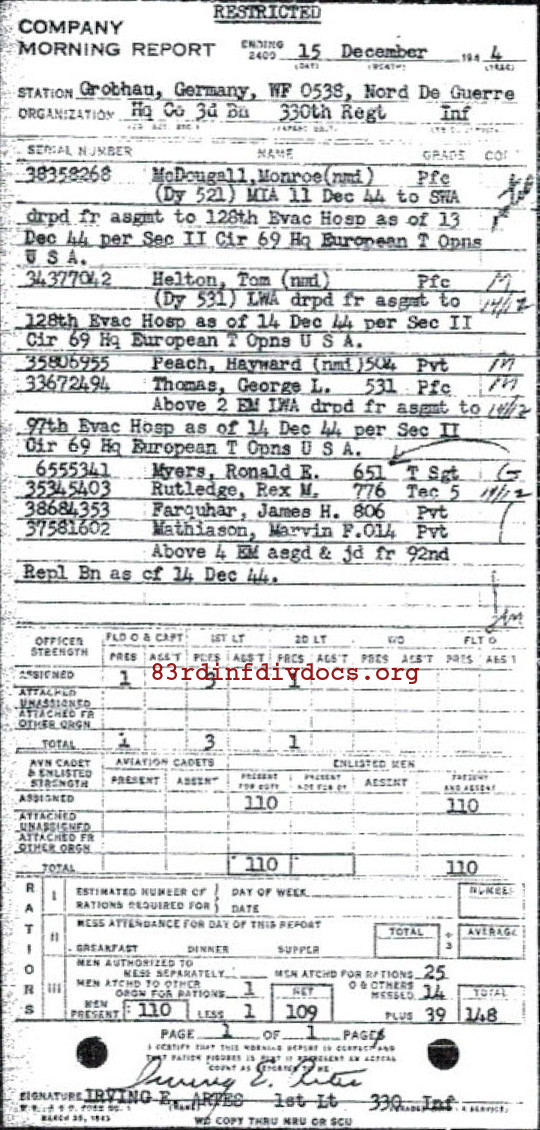 RESTRICTED
COMPANY
MORNING REPORT ENDING 2400 15 December 194 4
(DAY) (MONTH) (YEAR)
STATION Grobhau, Germany, WF 0538, Nord De Guerre
ORGANIZATION Hq Co 3d Bn 330th Regt Inf
SERIAL NUMBER NAME GRADE
38358268 McDougall, Monroe(nmi) Pfc
(Dy 521) MIA 11 Dec 44 to SWA
drpd fr asgmt to 128th Evac Hosp as of 13
Dec 44 per Sec II Cir 69 Hq European T Opns
U S A.
34377042 Helton, Tom (nmi) Pfc M
(Dy 531) LWA drpd fr asgmt to 14/12
128th Evac Hosp as of 14 Dec 44 per Sec II
Cir 69 Hq European T Opns U S A.
35806955 Peach, Hayward (nmi)504 Pvt M
33672494 Thomas, George L. 531 Pfc M
Above 2 EM LWA drpd fr asgmt to 14/12
97th Evac Hosp as of 14 Dec 44 per Sec II
Cir 69 Hq European T Opns U S A.
6555341 Myers, Ronald E. 651 T Sgt
35345403 Rutledge, Rex M. 776 Tec 5 14/12
38684353 Farquhar, James H. 806 Pvt
37581602 Mathiason, Marvin F.014 Pvt
Above 4 EM asgd & jd fr 92nd
Repl Bn as of 14 Dec 44.
OFFICER STRENGTH FLD O & CAPT 1ST LT 2D LT WO FLT O
PRES ABS'T PRES ABS'T PRES ABS'T PRES ABS'T PRES ABS'T
ASSIGNED 1 3 1
83rdinfdivdocs.org
ATTACHED UNASSIGNED
ATTACHED FR OTHER ORGN
TOTAL 1 3 1
AVN CADET & ENLISTED STRENGTH AVIATION CADETS ENLISTED MEN
PRESENT ABSENT PRESENT FOR DUTY PRESENT NOT FOR DY ABSENT PRESENT AND ABSENT
ASSIGNED 110 110
ATTACHED UNASSIGNED
ATTACHED FR OTHER ORGN
TOTAL 110 110
RATIONS
I ESTIMATED NUMBER OF RATIONS REQUIRED FOR DAY OF WEEK DATE NUMBER
II MESS ATTENDANCE FOR DAY OF THIS REPORT TOTAL ÷ 3 AVERAGE
BREAKFAST DINNER SUPPER
III MEN AUTHORIZED TO MESS SEPARATELY MEN ATCHD FOR RATIONS 25
MEN ATCHD TO OTHER ORGN FOR RATIONS 1 NET O & OTHERS MESSED 14 TOTAL
MEN PRESENT 110 LESS 1 109 PLUS 39 148
PAGE 1 OF 1 PAGES
I CERTIFY THAT THIS MORNING REPORT IS CORRECT AND
THAT RATION FIGURES IN PART III REPRESENT AN ACTUAL
COUNT AS REPORTED TO ME
SIGNATURE IRVING E. ARTES 1st Lt 330 Inf
MARCH 25, 1943
WD COPY THRU MRU OR SCU